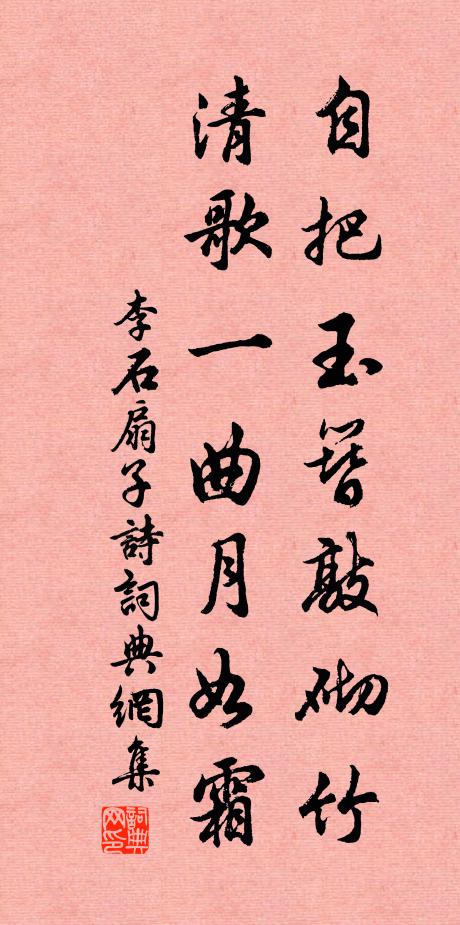 自把玉簪敲砌竹
清歌一曲月如霜
李石扇子詩詞典網集
詞典网印